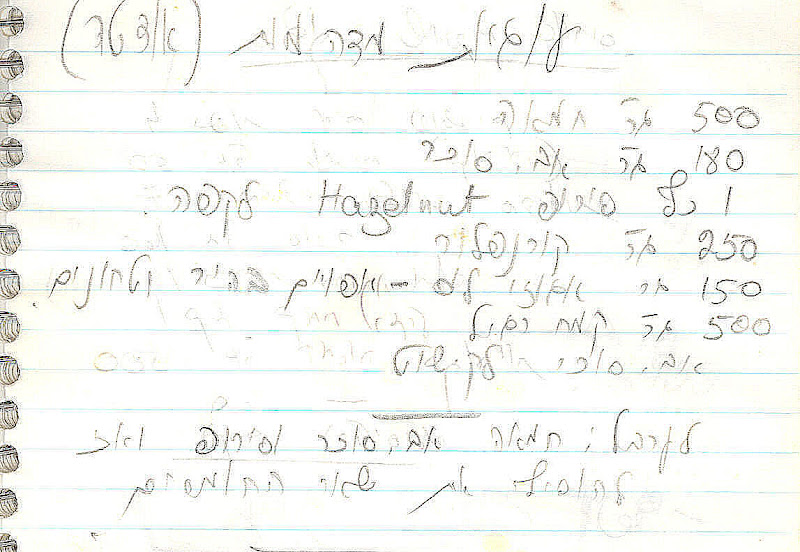 עוגיות מדהימות (אודטה)
500 גר' חמאה
180 גר' אב. סוכר
1 כף סירופ Hazelnut לקפה.
250 גר' קורנפלור
150 גר' אגוזי לוז - אפויים בהיר וטחונים.
500 גר' קמח רגיל
אב. סוכר לקישוט
לערבל: חמאה אב. סוכר וסירופ ואז
להוסיף את שאר החומרים